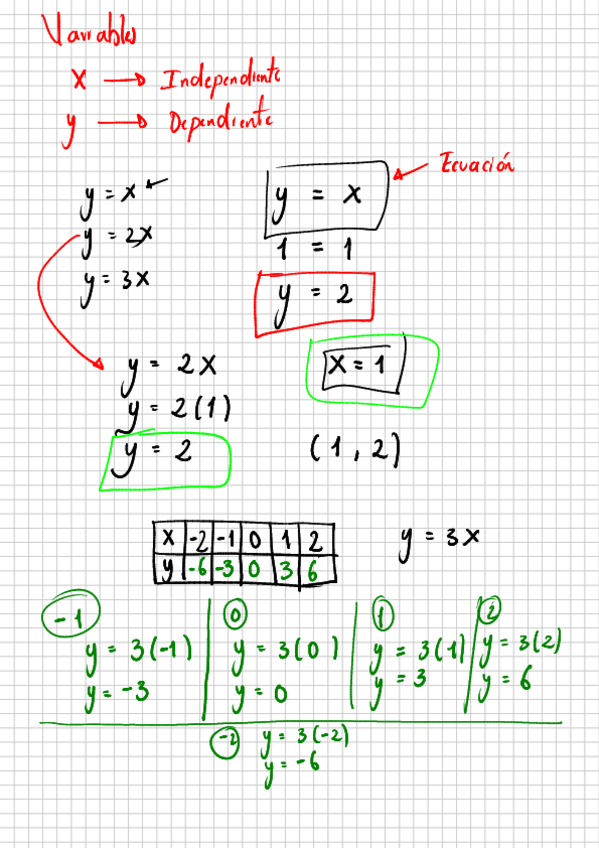 Variables
x → Independiente
y → Dependiente
y = x ←
y = 2x
y = 3x
y = x ← Ecuación
1 = 1
y = 2
y = 2x
y = 2(1)
y = 2
x = 1
(1, 2)
x -2 -1 0 1 2
y -6 -3 0 3 6
y = 3x
-1
y = 3(-1)
y = -3
0
y = 3(0)
y = 0
1
y = 3(1)
y = 3
2
y = 3(2)
y = 6
-2
y = 3(-2)
y = -6